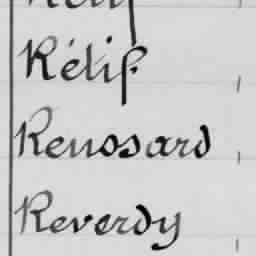 Rétif
Renssard
Reverdy